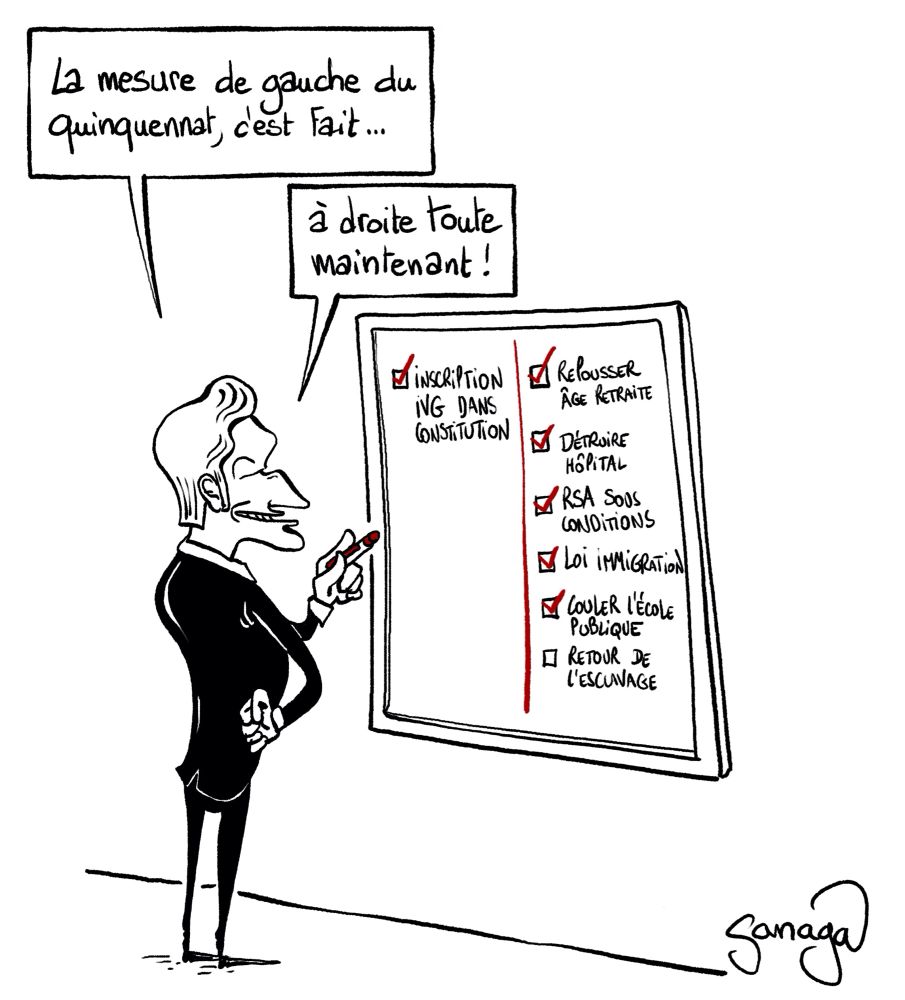 La mesure de gauche du
quinquennat, c'est fait...
à droite toute
maintenant !
INSCRIPTION
IVG DANS
CONSTITUTION
REPOUSSER
ÂGE RETRAITE
DÉTRUIRE
HÔPITAL
RSA SOUS
CONDITIONS
LOI IMMIGRATION
COULER L'ÉCOLE
PUBLIQUE
RETOUR DE
L'ESCLAVAGE
Sanaga